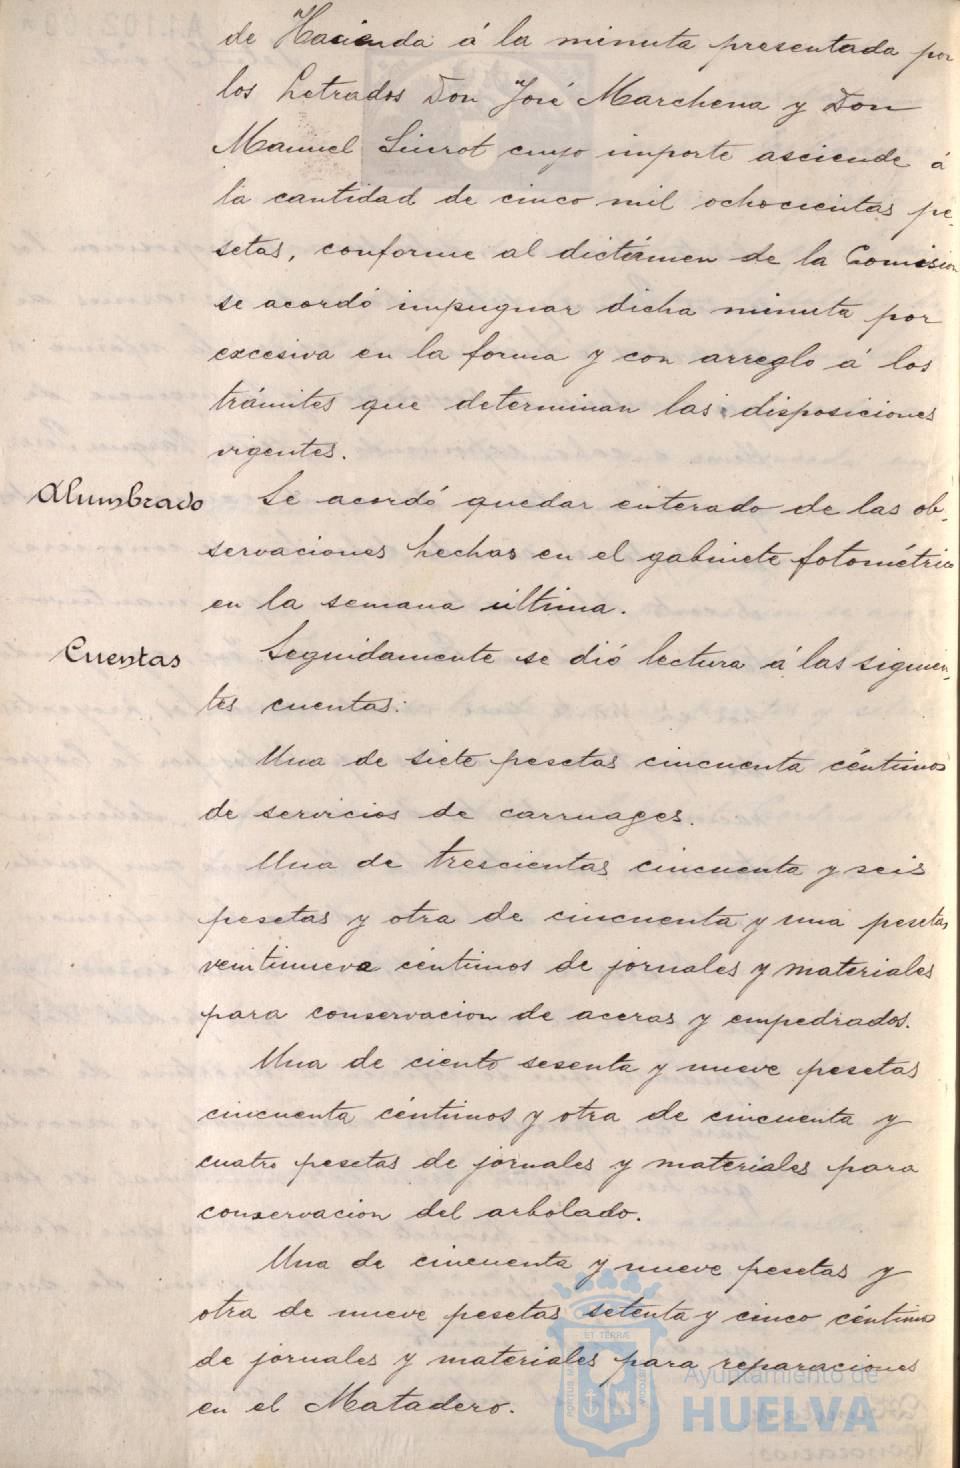 de Hacienda á la minuta presentada por
los Letrados Don José Marchena y Don
Manuel Siurot cuyo importe asciende á
la cantidad de cinco mil ochocientas pe-
setas, conforme al dictámen de la Comision
se acordó impugnar dicha minuta por
excesiva en la forma y con arreglo á los
trámites que determinan las disposiciones
vigentes.
Alumbrado
Se acordó quedar enterado de las ob-
servaciones hechas en el gabinete fotométrico
en la semana última.
Cuentas
Seguidamente se dió lectura á las siguien-
tes cuentas:
Una de siete pesetas cincuenta céntimos
de servicios de carruages.
Una de trescientas cincuenta y seis
pesetas y otra de cincuenta y una pesetas
veintinueve céntimos de jornales y materiales
para conservacion de aceras y empedrados.
Una de ciento sesenta y nueve pesetas
cincuenta céntimos y otra de cincuenta y
cuatro pesetas de jornales y materiales para
conservacion del arbolado.
Una de cincuenta y nueve pesetas y
otra de nueve pesetas setenta y cinco céntimos
de jornales y materiales para reparaciones
en el Matadero.
ET TERRÆ
Ayuntamiento de
HUELVA